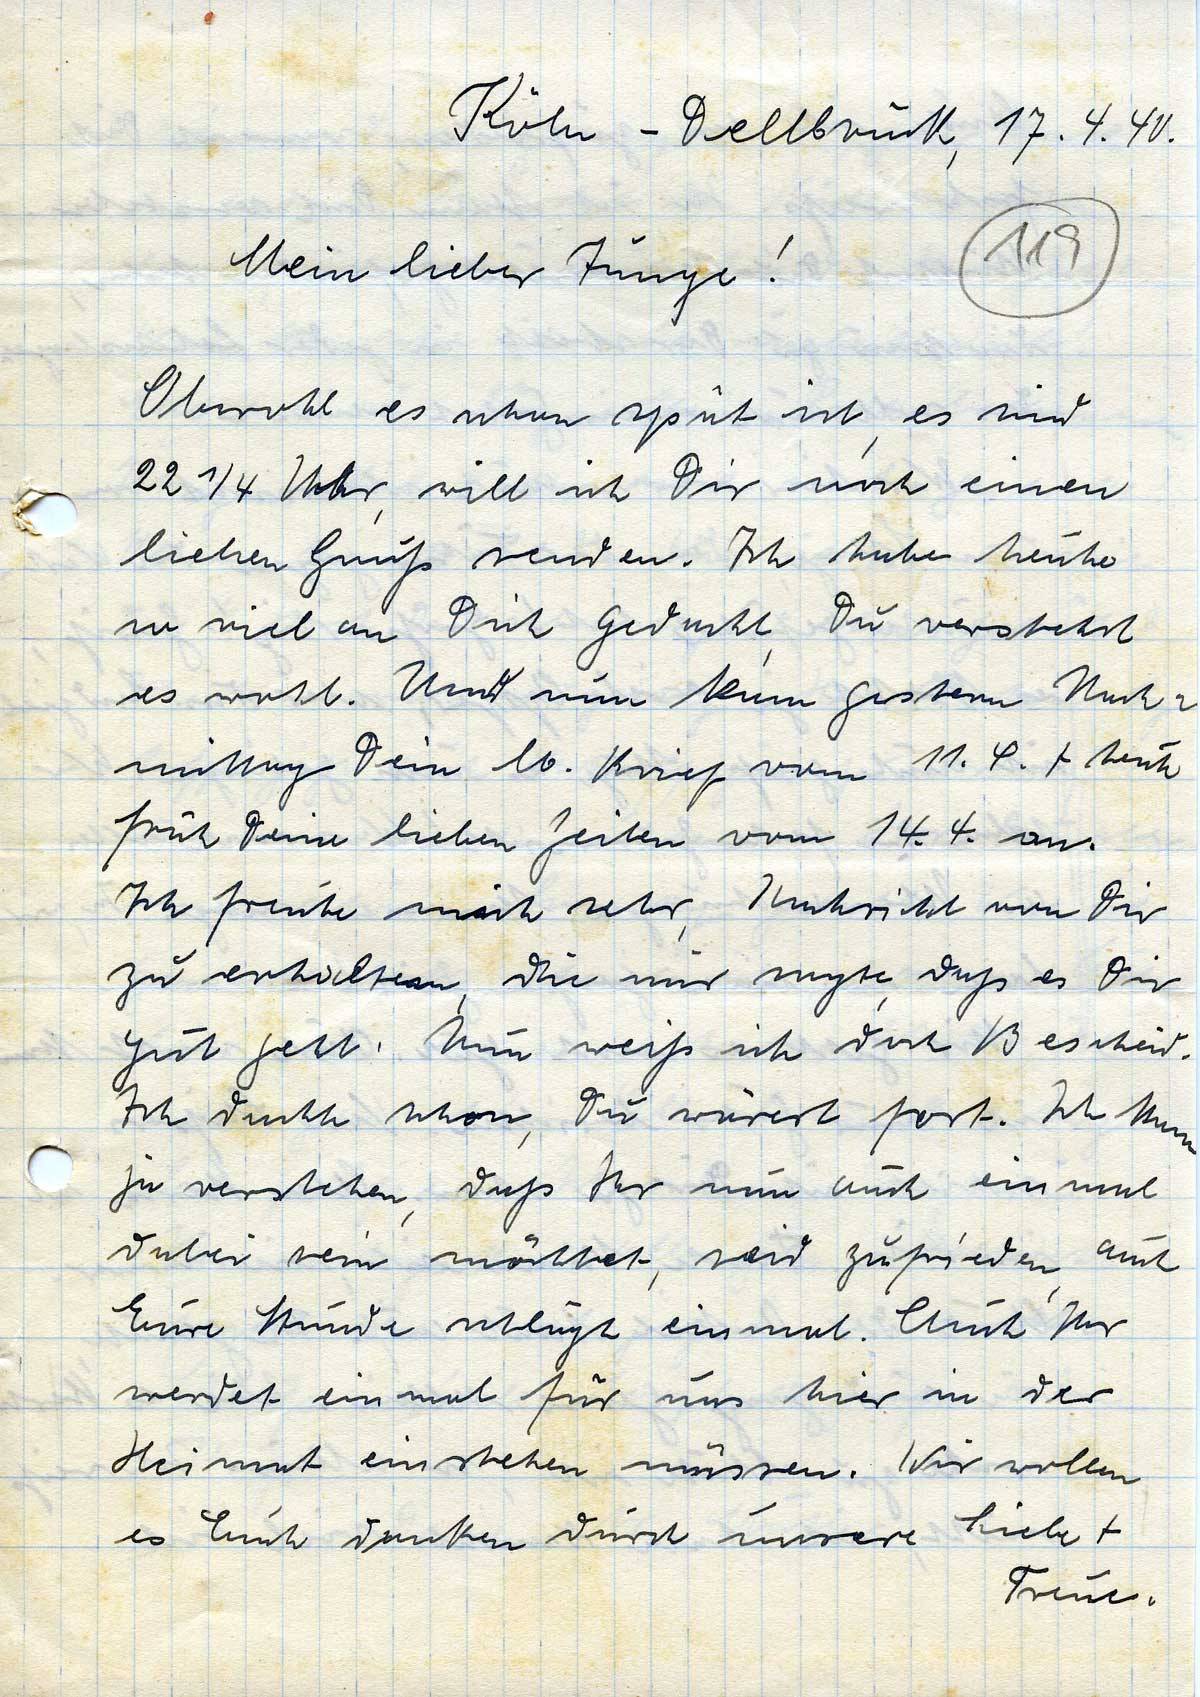 Köln - Dellbrück, 17. 4. 40.
119
Mein lieber Junge!
Obwohl es schon spät ist, es sind
22 1/4 Uhr, will ich Dir noch einen
lieben Gruß senden. Ich habe heute
so viel an Dich gedacht, Du verstehst
es wohl. Und nun kam gestern Nach=
mittag Dein lb. Brief vom 11. 4. + heute
früh Deine lieben Zeilen vom 14. 4. an.
Ich freute mich sehr, Nachricht von Dir
zu erhalten, die mir sagte, daß es Dir
gut geht. Nun weiß ich doch Bescheid.
Ich dachte schon, Du wärest fort. Ich kann
ja verstehen, daß Ihr nun auch einmal
dabei sein möchtet, seid zufrieden, auch
Eure Stunde schlägt einmal. Auch Ihr
werdet einmal für uns hier in der
Heimat einstehen müssen. Wir wollen
es Euch danken durch unsere Liebe +
Treue.